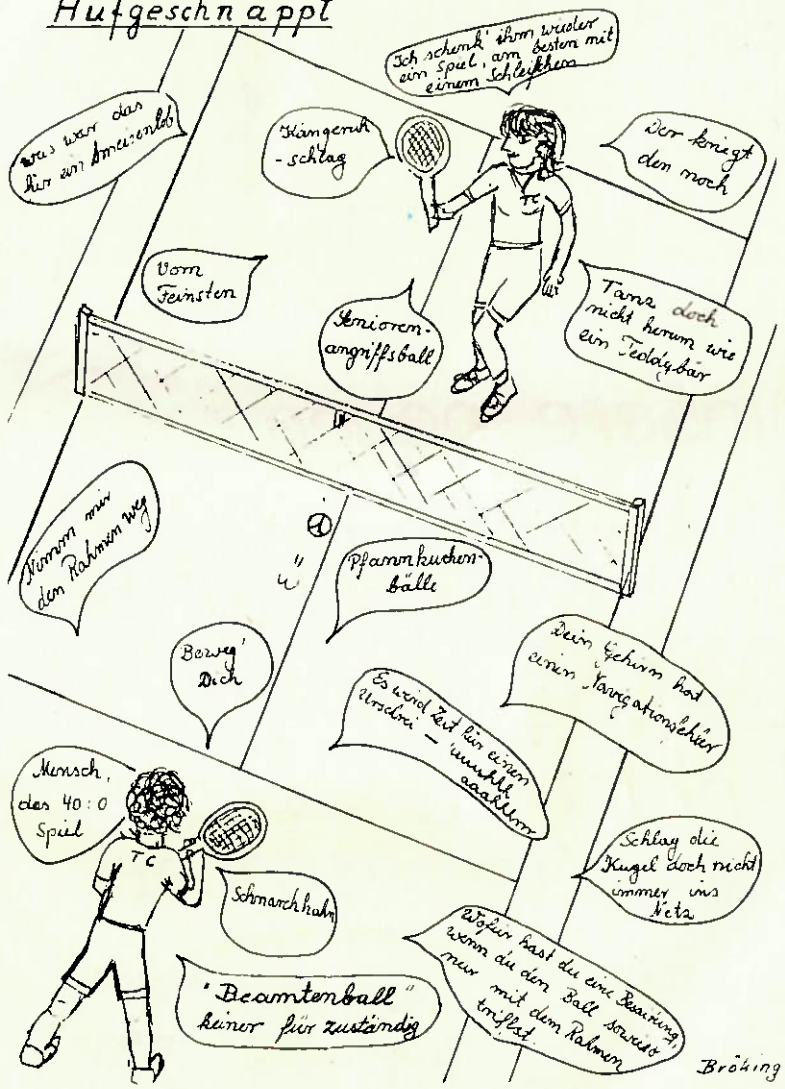 Aufgeschnappt
Ich schenk' ihm wieder
ein Spiel, am besten mit
einem Schleifchen
was war das
für ein Ameisenlob
Känguruh
-schlag
Der kriegt
den noch
TC
Vom
Feinsten
Senioren-
angriffsball
Tanz doch
nicht herum wie
ein Teddybär
Nimm mir
den Rahmen weg
Pfannkuchen-
bälle
Beweg'
Dich
Dein Gehirn hat
einen Navigationsfehler
Es wird Zeit für einen
Urschrei – 'uuuhhh
aaahhmm
Mensch,
das 40:0
Spiel
TC
Schlag die
Kugel doch nicht
immer ins
Netz
Schnarchhahn
"Beamtenball"
keiner für zuständig
Wofür hast du eine Besaitung,
wenn du den Ball sowieso
nur mit dem Rahmen
triffst.
Bröking